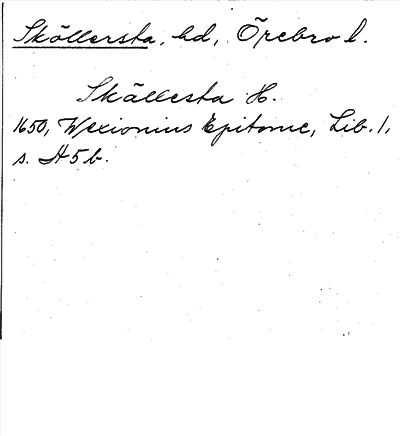 Sköllersta, hd, Örebro l.
Skällesta H.
1650, Wexionius Epitome, Lib. 1,
s. H 5 b.